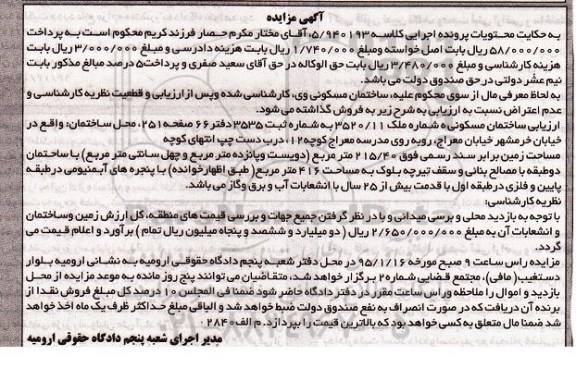 آگهی مزایده
به حکایت محتویات پرونده اجرایی کلاسه ۵/۹۴۰۱۹۳، آقای مختار مکرم حصار فرزند کریم محکوم است به پرداخت
۵۸/۰۰۰/۰۰۰ ریال بابت اصل خواسته ومبلغ ۱/۷۴۰/۰۰۰ ریال بابت هزینه دادرسی و مبلغ ۳/۰۰۰/۰۰۰ ریال بابت
هزینه کارشناسی و مبلغ ۳/۴۸۰/۰۰۰ بابت حق الوکاله در حق آقای سعید صفری و پرداخت۵ درصد مبالغ مذکور بابت
نیم عشر دولتی در حق صندوق دولت می باشد.
به لحاظ معرفی مال از سوی محکوم علیه، ساختمان مسکونی وی، کارشناسی شده وپس از ارزیابی و قطعیت نظریه کارشناسی و
عدم اعتراض نسبت به ارزیابی به شرح زیر به فروش گذاشته می شود.
ارزیابی ساختمان مسکونی ه شماره ملک ۳۵۲۰/۱۱ به شماره ثبت ۳۵۳۵ دفتر ۶۶ صفحه ۲۵۱، محل ساختمان: واقع در
خیابان خرمشهر خیابان معراج، روبه روی مدرسه معراج کوچه۱۲، درب دست چپ انتهای کوچه
مساحت زمین برابر سند رسمی فوق ۲۱۵/۴۰ متر مربع (دویست وپانزده متر مربع و چهل سانتی متر مربع) با ساختمان
دوطبقه با مصالح بنائی و سقف تیرچه بلوک به مساحت ۴۱۶ متر مربع( طبق اظهارخوانده) با پنجره های آلمینومی درطبقه
پایین و فلزی درطبقه اول با قدمت بیش از ۲۵ سال با انشعابات آب و برق وگاز می باشد.
نظریه کارشناسی:
با توجه به بازدید محلی و بررسی میدانی و با در نظر گرفتن جمیع جهات و بررسی قیمت های منطقه، کل ارزش زمین وساختمان
و انشعابات آن به مبلغ ۲/۶۵۰/۰۰۰/۰۰۰ ریال ( دو میلیارد و ششصد و پنجاه میلیون ریال تمام ) برآورد و اعلام قیمت می
گردد.
مزایده راس ساعت ۹ صبح مورخه ۹۵/۱/۱۶ در محل دفتر شعبه پنجم دادگاه حقوقی ارومیه به نشانی ارومیه بلوار
دستغیب( مافی)، مجتمع قضایی شماره ۲ برگزار خواهد شد، متقاضیان می توانند پنج روز مانده به موعد مزایده از محل
بازدید و اموال را ملاحظه وراس ساعت مقرر در دفتر دادگاه حاضر شود ضمنا فی المجلس ۱۰ درصد کل مبلغ فروش نقدا از
برنده آن دریافت که در صورت انصراف به نفع صندوق دولت ضبط خواهد شد و الباقی مبلغ حداکثر ظرف یک ماه اخذ خواهد
شد ضمنا مال متعلق به کسی خواهد بود که بالاترین قیمت را بپردازد. م الف۲۸۴۰
مدیر اجرای شعبه پنجم دادگاه حقوقی ارومیه